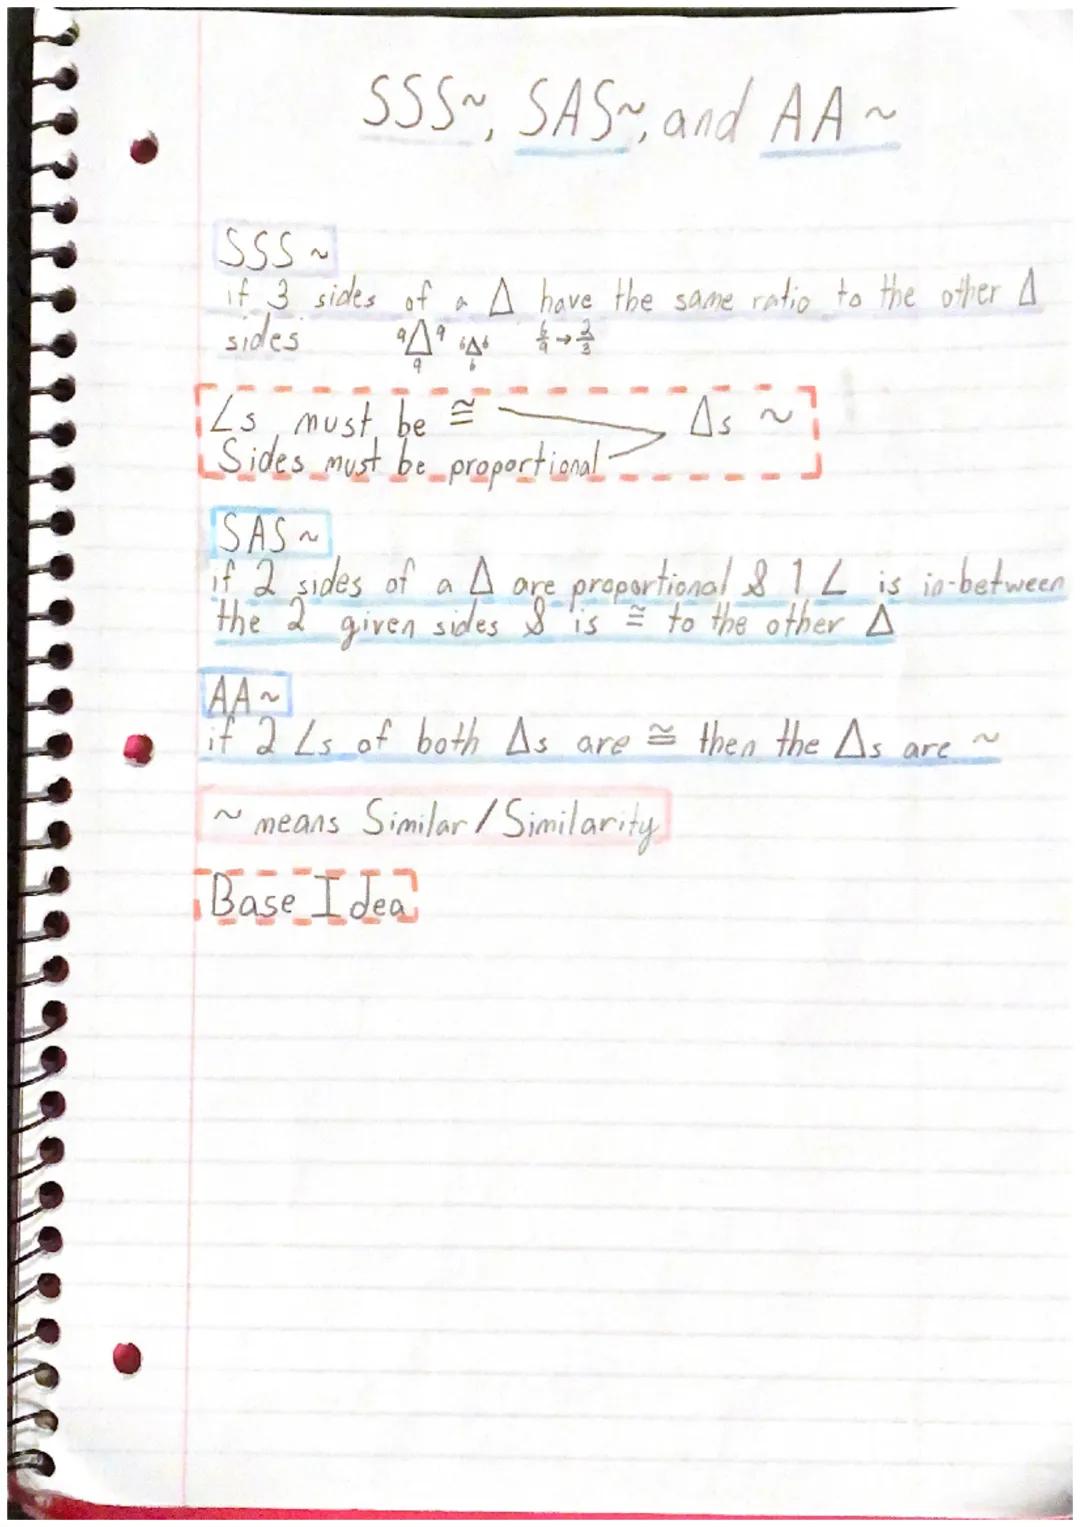 SSS~, SAS~, and AA~
SSS~
if 3 sides of a Δ have the same ratio to the other Δ
sides
9 Δ 9 6 Δ 6 6/9 → 2/3
9 6
∠s must be ≅ Δs ~
Sides must be proportional
SAS~
if 2 sides of a Δ are proportional & 1 ∠ is in-between
the 2 given sides & is ≅ to the other Δ
AA~
if 2 ∠s of both Δs are ≅ then the Δs are ~
~ means Similar/Similarity
Base Idea